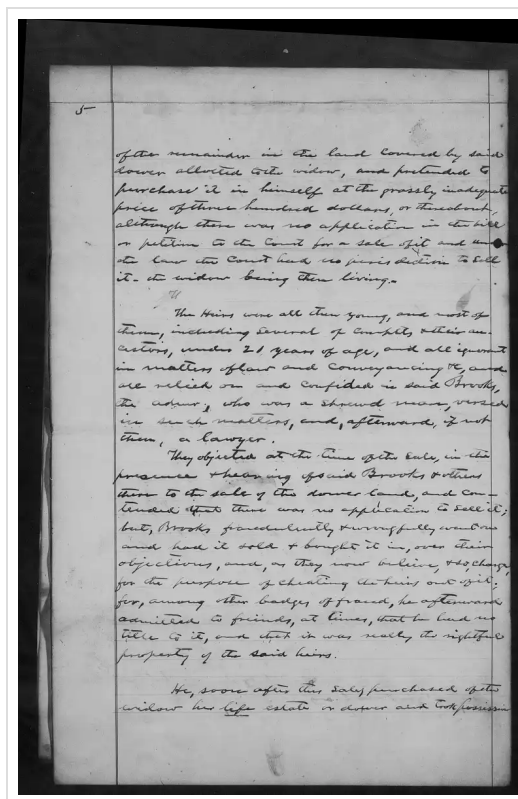 5
of the remainder in the land covered by said
dower allotted to the widow, and pretended to
purchase it in himself at the grossly inadequate
price of three hundred dollars, or thereabout,
although there was no application in the bill
or petition to the Court for a sale of it and under
the law the Court had no jurisdiction to sell
it - the widow being then living.
The Heirs were all then young, and most of
them, including several of Complts & their an-
cestors, under 21 years of age, and all ignorant
in matters of law and conveyancing &c, and
all relied on and confided in said Brooks,
the admr., who was a shrewd man, versed
in such matters, and, afterward, if not
then, a lawyer.
They objected at the time of the sale, in the
presence & hearing of said Brooks & others
then to the sale of the dower land, and con-
tended that there was no application to sell it;
but, Brooks fraudulently & wrongfully went on
and had it sold & bought it in, over their
objections, and, as they now believe, & so, charge,
for the purpose of cheating the heirs out of it;
for, among other badges of fraud, he afterward
admitted to friends, at times, that he had no
title to it, and that it was really the rightful
property of the said heirs.
He, soon after this sale, purchased of the
widow her life estate or dower and took possession